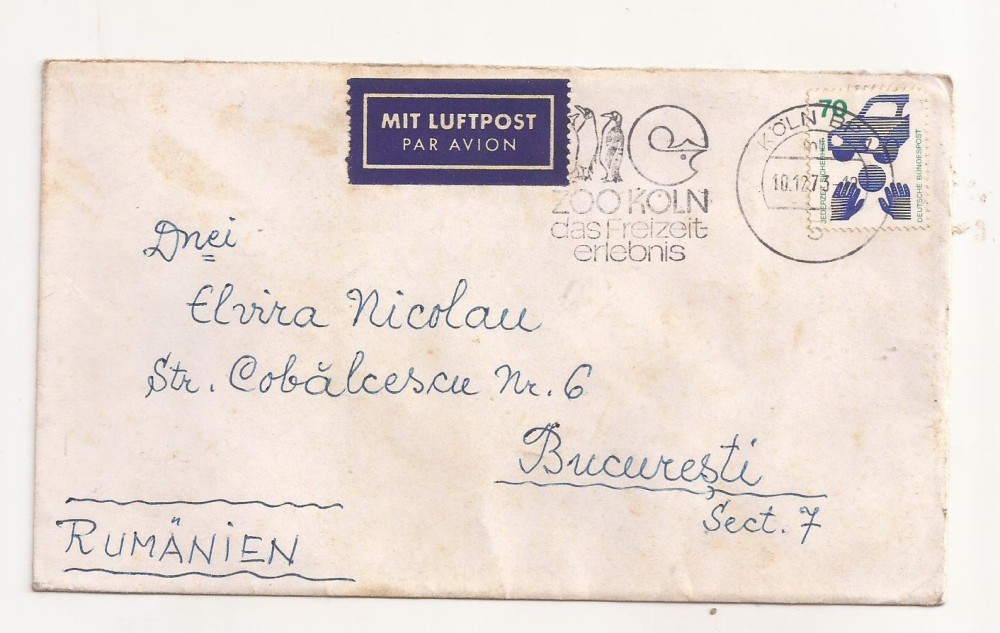 MIT LUFTPOST
PAR AVION
ZOO KÖLN
das Freizeit-
erlebnis
KÖLN
10.12.73
70
JEDERZEIT SICHERHEIT
DEUTSCHE BUNDESPOST
Dnei
Elvira Nicolau
Str. Cobălcescu Nr. 6
București
Sect. 7
RUMÄNIEN